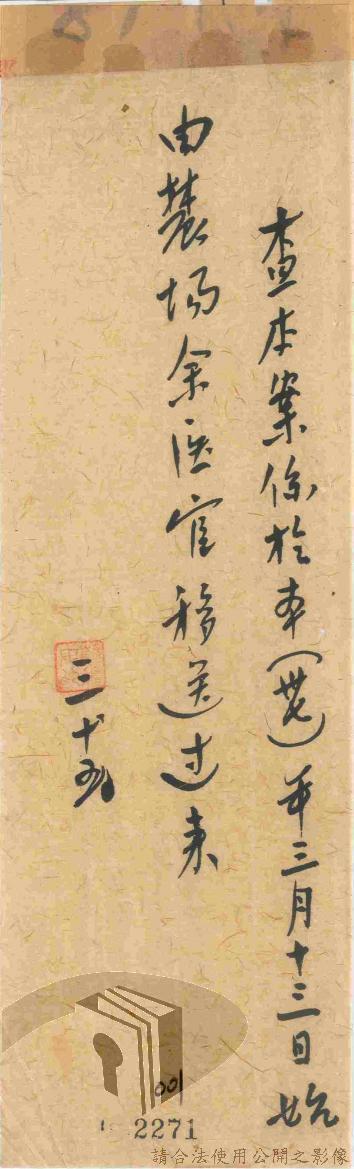 查本案係於本(卅七)年三月十三日始
由農場余医官移送过来
三、十五
001
2271
請合法使用公開之影像